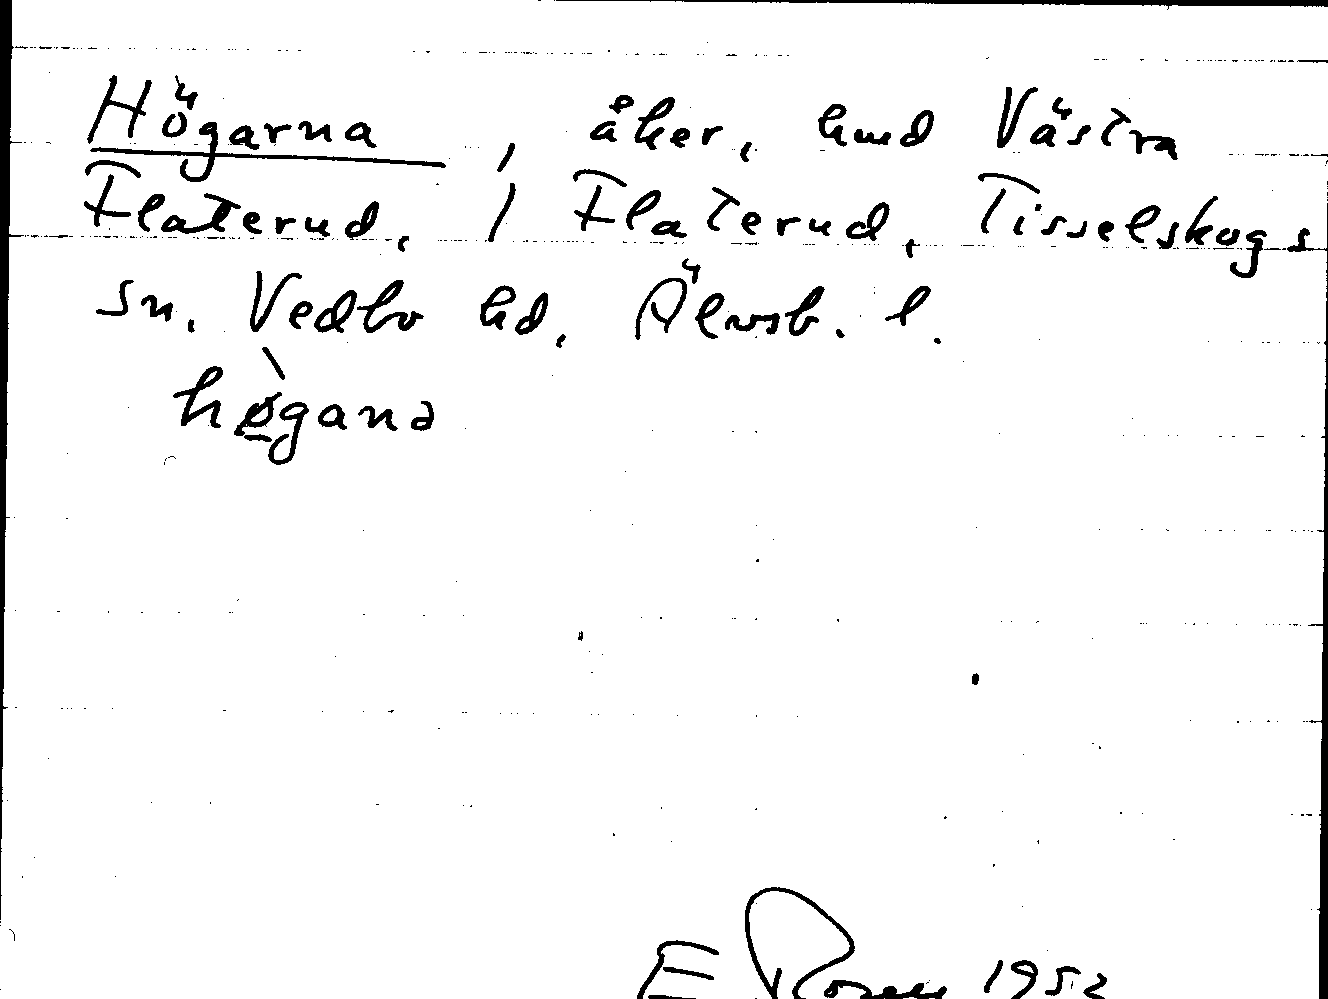 Högarna, åker, hmd Västra
Flaterud, 1 Flaterud, Tisselskogs
sn. Vedbo hd, Älvsb. l.
hø̱̀gana
E Rosen 1952